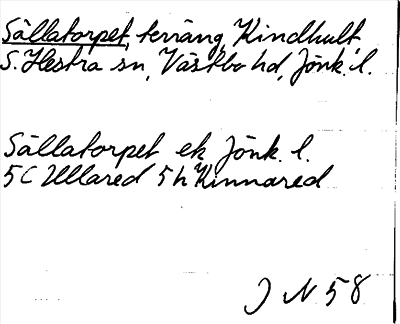 Sällatorpet, terräng, Kindhult
S. Hestra sn, Västbo hd, Jönk. l.
Sällatorpet ek, Jönk. l.
5C Ullared 5h Kinnared
J N 58